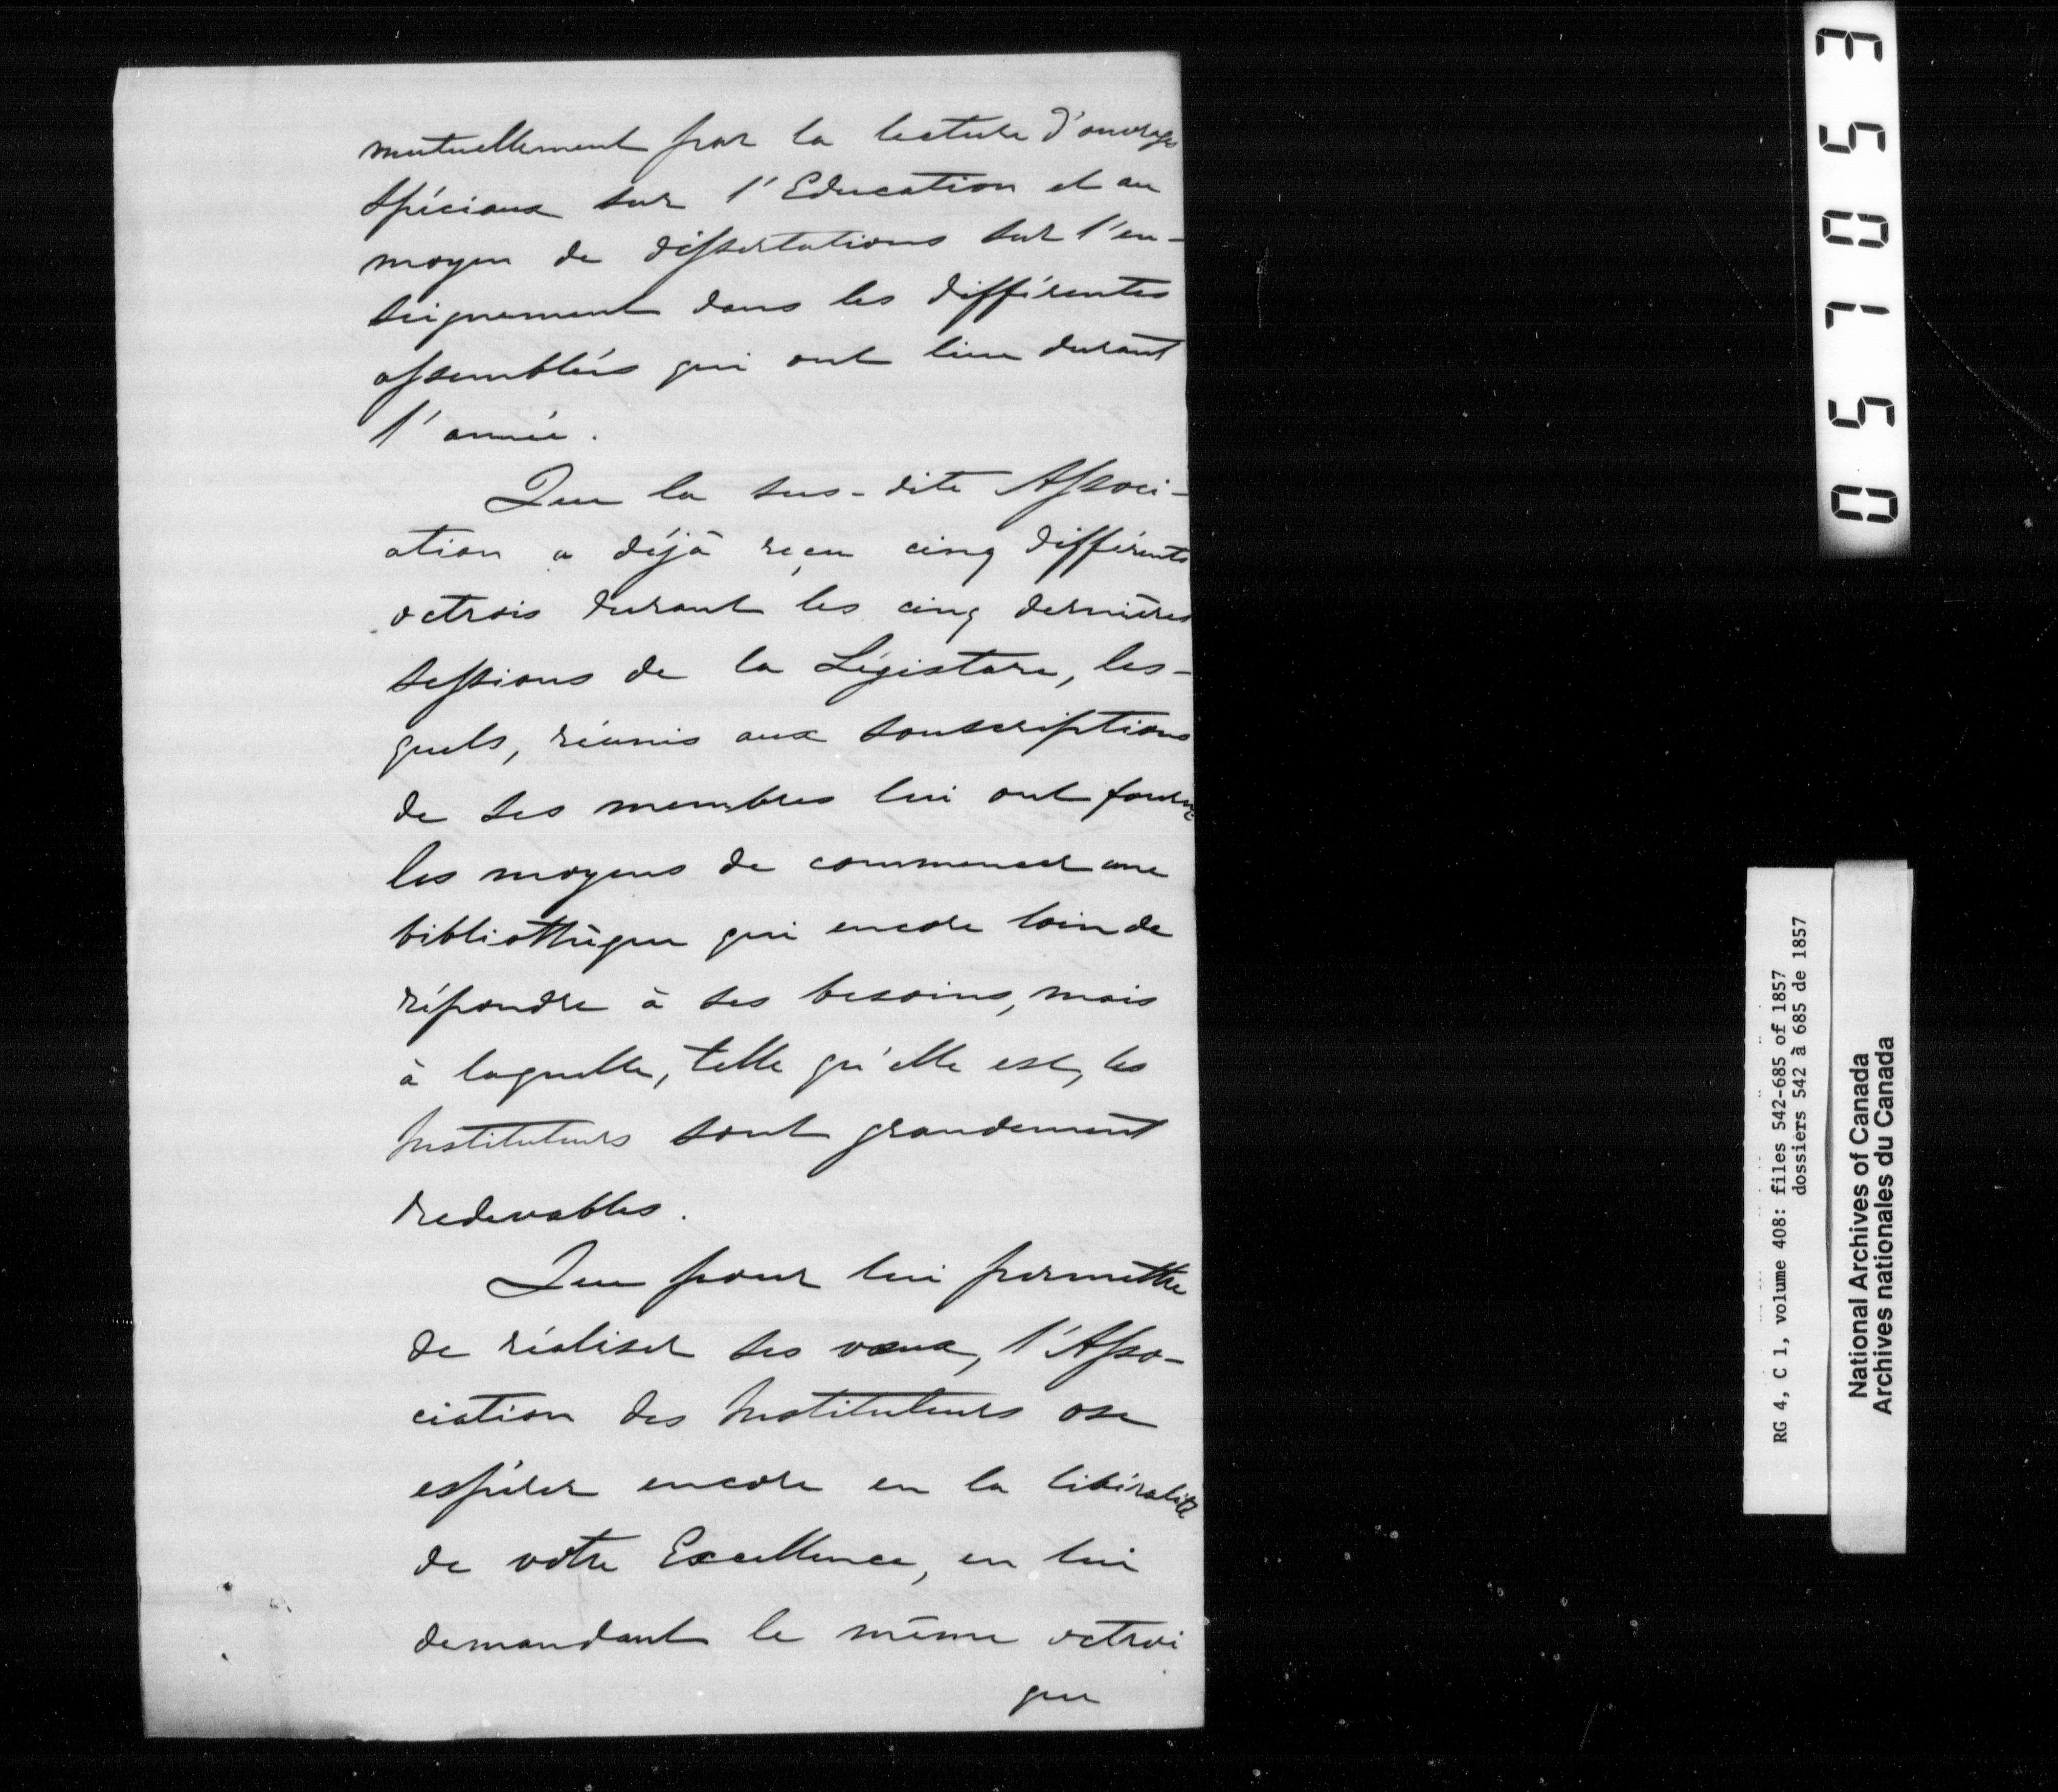 mutuellement par la lecture d'ouvrages
spéciaux sur l'Education et au
moyen de dissertations sur l'en-
seignement dans les différentes
assemblées qui ont lieu durant
l'année.
Que la sus-dite Associ-
ation a déjà reçu cinq différents
octrois durant les cinq dernières
sessions de la Légistare, les-
quels, réunis aux souscriptions
de ses membres lui ont fourni
les moyens de commencer une
bibliothèque qui encore loin de
répondre à ses besoins, mais
à laquelle, telle qu'elle est, les
Instituteurs sont grandement
redevables.
Que pour lui permettre
de réaliser ses vœux, l'Asso-
ciation des Instituteurs ose
espérer encore en la libéralité
de votre Excellence, en lui
demandant le même octroi
que
051053
RG 4, C 1, volume 408: files 542-685 of 1857
dossiers 542 à 685 de 1857
National Archives of Canada
Archives nationales du Canada